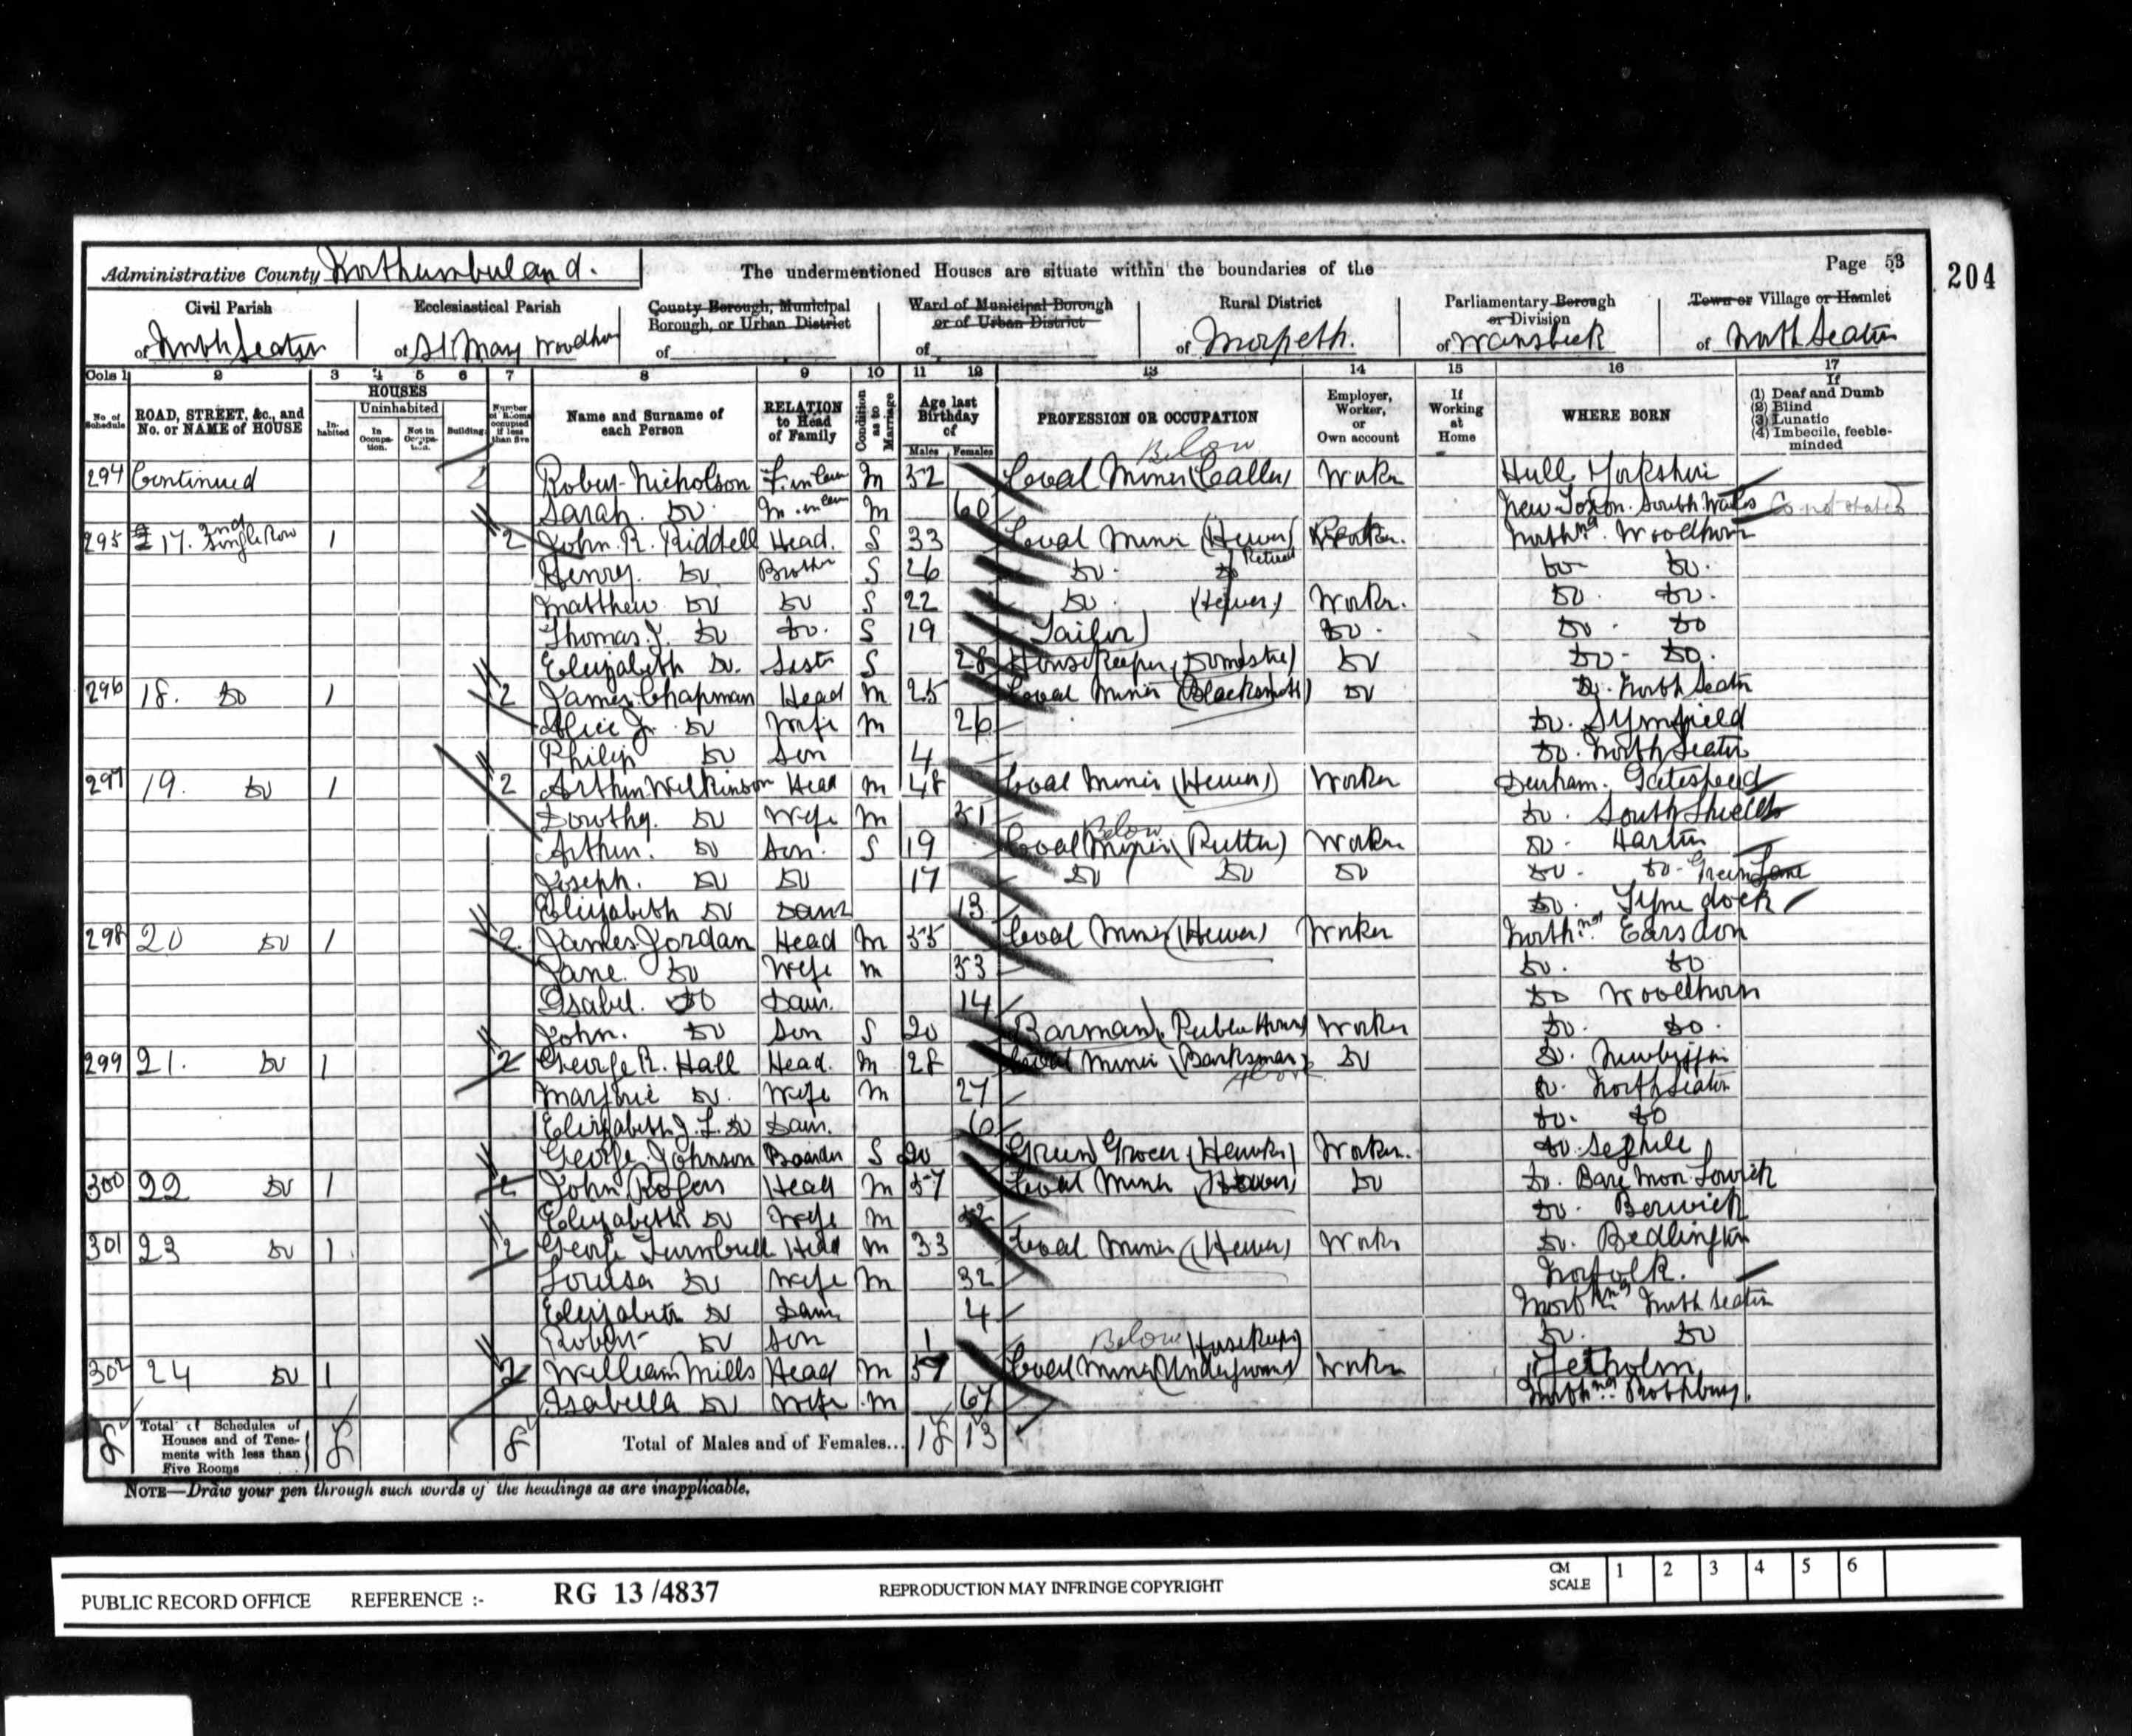 Administrative County Northumberland. The undermentioned Houses are situate within the boundaries of the Page 53
204
Civil Parish Ecclesiastical Parish County Borough, Municipal Borough, or Urban District Ward of Municipal Borough or of Urban District Rural District Parliamentary Borough or Division Town or Village or Hamlet
of North Seaton of St Mary Woodhorn of of of Morpeth. of Wansbeck of North Seaton
Cols 1 2 3 4 5 6 7 8 9 10 11 12 13 14 15 16 17
No. of Schedule ROAD, STREET, &c., and No. or NAME of HOUSE HOUSES Inhabited Uninhabited In Occupation. Not in Occupation. Building Number of Rooms occupied if less than five Name and Surname of each Person RELATION to Head of Family Condition as to Marriage Age last Birthday of Males Females PROFESSION OR OCCUPATION Employer, Worker, or Own account If Working at Home WHERE BORN If (1) Deaf and Dumb (2) Blind (3) Lunatic (4) Imbecile, feeble-minded
Below
294 Continued Nicholson F. in law M 52 Coal Miner (Caller) Worker Hull Yorkshire
Sarah Do M. in law M 60 South Wales Co not stated
295 17. 2nd Single Row 1 2 John. R. Riddell Head. S 33 Coal Miner (Hewer) Worker. Northmd. Woodhorn
Henry. Do Brother S 26 Do. Do Retired Do Do.
Matthew Do Do S 22 Do. (Hewer) Worker. Do. Do.
Thomas J. Do Do. S 19 Tailor Do. Do. Do
Elizabeth Do. Sister S 28 Housekeeper (Domestic) Do Do- Do.
296 18. Do 1 2 James Chapman Head M 25 Coal Miner (Blacksmith) Do Do. North Seaton
Alice J. Do Wife M 26 Do.
Philip Do Son 4 Do. North Seaton
297 19. Do 1 2 Arthur Wilkinson Head M 48 Coal Miner (Hewer) Worker Durham. Gateshead
Dorothy. Do Wife M 51 Do. South Shields
Below
Arthur. Do Son. S 19 Coal Miner (Putter) Worker Do. Harton
Joseph. Do Do 17 Do Do Do Do. Do. Green Lane
Elizabeth Do Daur 13 Do. Tyne dock
298 20 Do 1 2 James Jordan Head M 55 Coal Miner (Hewer) Worker Northmd Earsdon
Jane. Do Wife M 53 Do. Do
Isabel. Do Daur. 14 Do Woodhorn
John. Do Son S 20 Barman, Public House Worker Do. Do.
299 21. Do 1 2 George R. Hall Head. M 28 Coal Miner (Banksman) Do Do. Newbiggin
Above
Marjorie Do. Wife M 27 Do. North Seaton
Elizabeth J. Do Daur. 6 Do. Do
George Johnson Boarder S 20 Green Grocer (Hawker) Worker. Do. Seghill
300 22 Do 1 2 John Rogers Head M 57 Coal Miner (Hewer) Do Do. Lowick
Elizabeth Do Wife M 52 Do. Berwick
301 23 Do 1 2 George Turnbull Head M 33 Coal Miner (Hewer) Worker Do. Bedlington
Louisa Do Wife M 32 Norfolk.
Elizabeth Do Daur 4 Northmd North Seaton
Robert Do Son 1 Do. Do
Below
302 24 Do 1 2 William Mills Head M 59 Coal Miner (Underground Worker Yetholm
Isabella Do Wife M 67 Northmd Rothbury.
8 Total of Schedules of Houses and of Tenements with less than Five Rooms 8 8 Total of Males and of Females... 18 13
NOTE—Draw your pen through such words of the headings as are inapplicable.
PUBLIC RECORD OFFICE REFERENCE :- RG 13 /4837 REPRODUCTION MAY INFRINGE COPYRIGHT CM SCALE 1 2 3 4 5 6